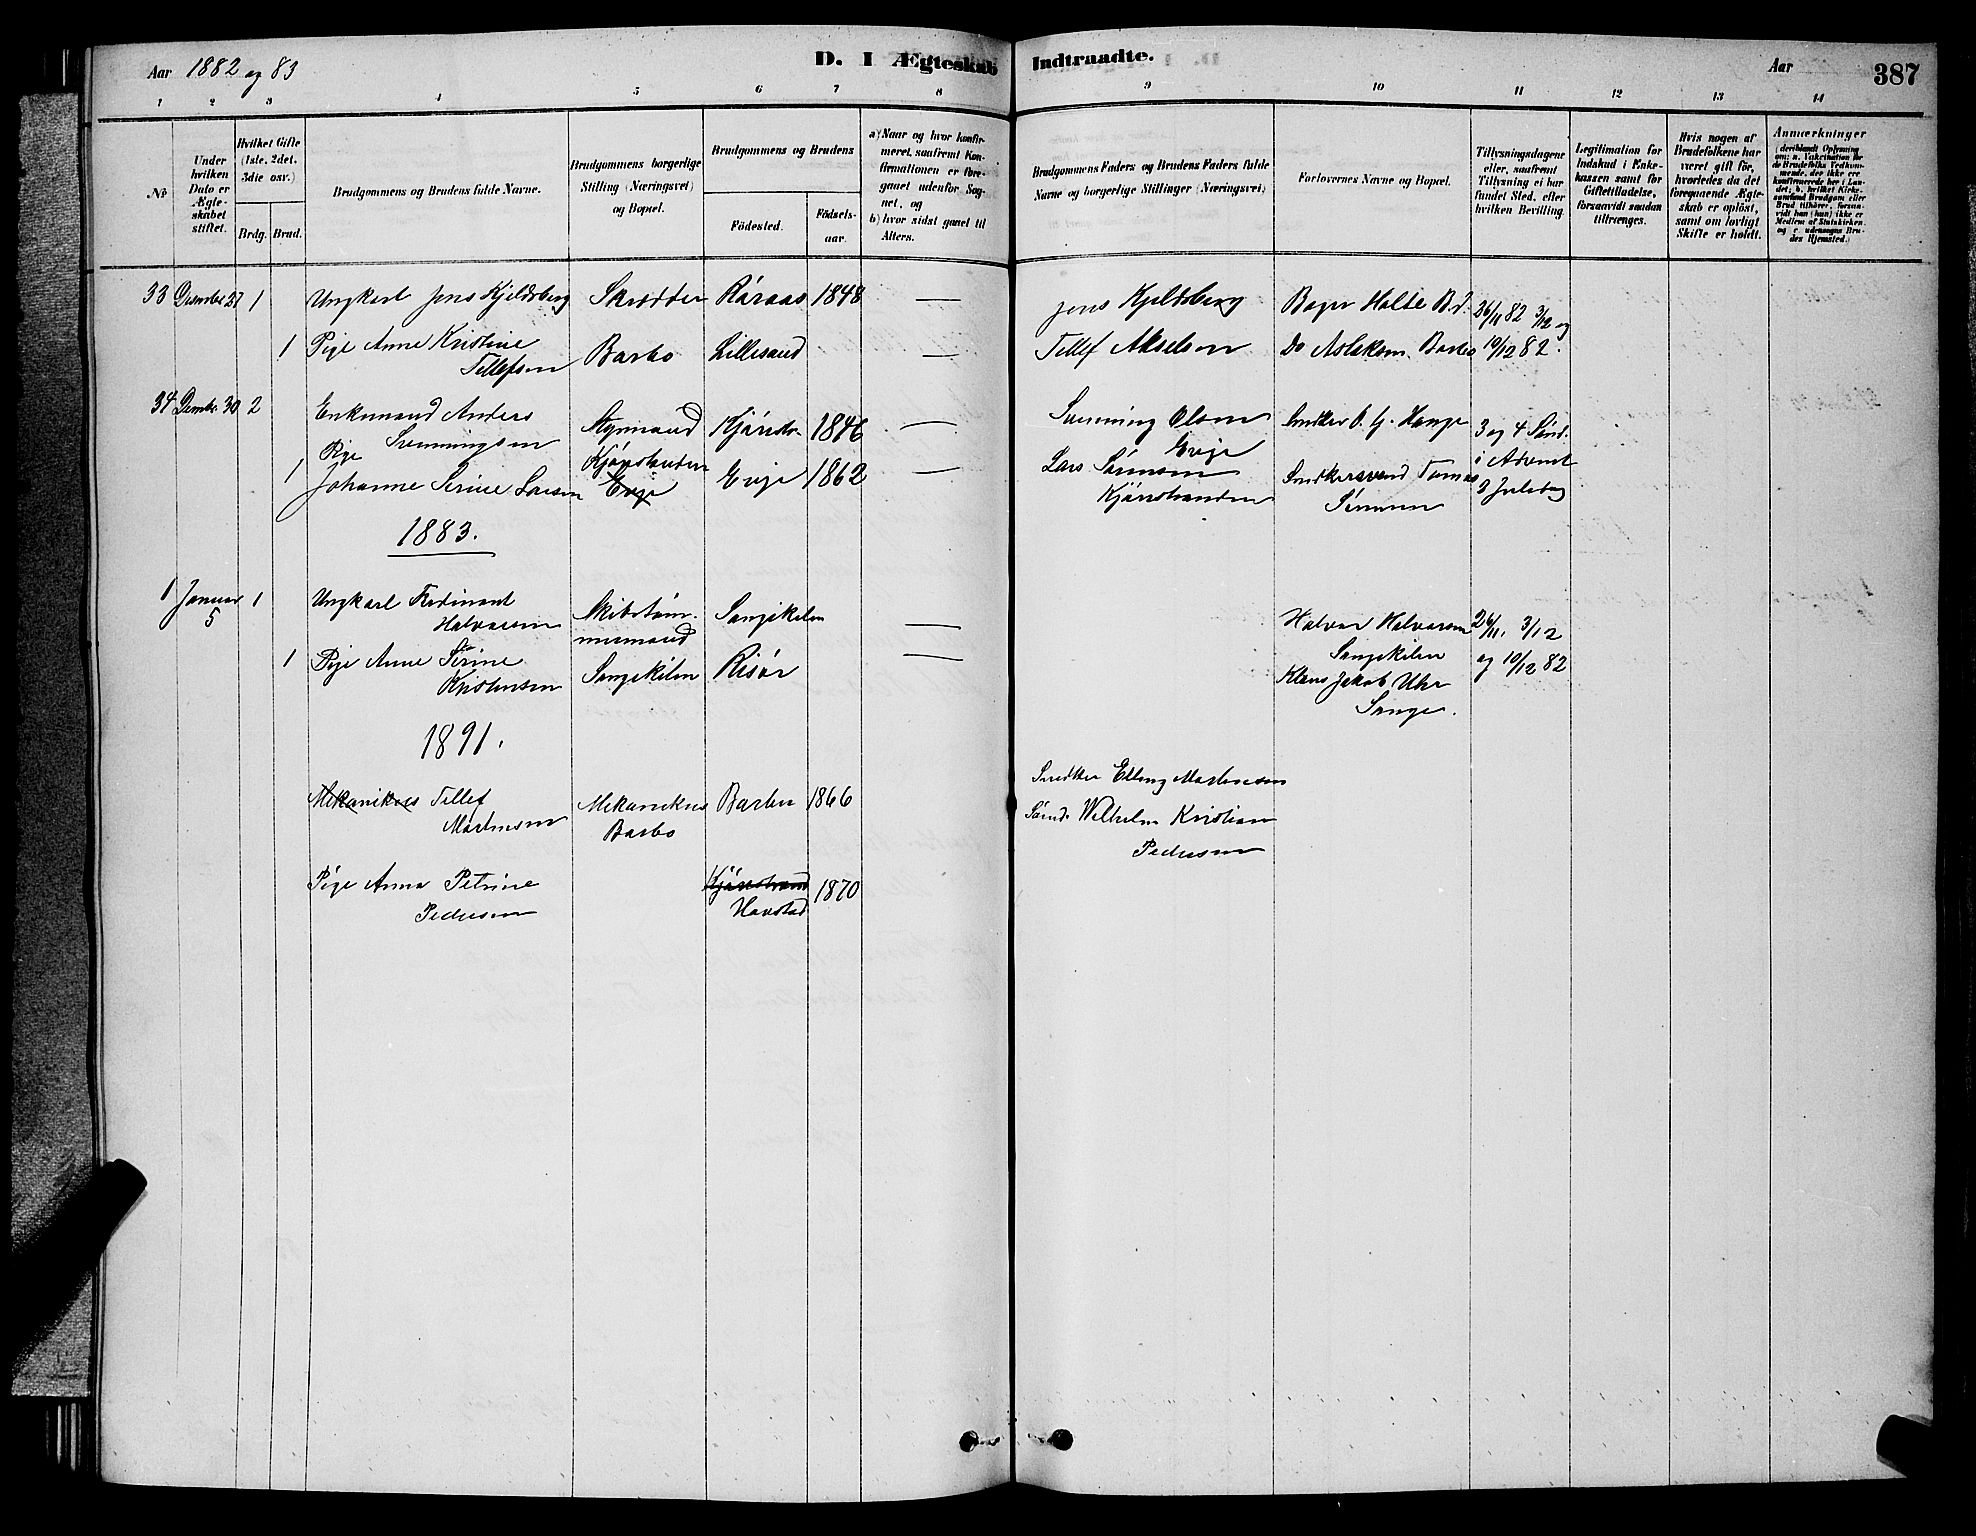 Aar 1882 og 83
D. I Ægteskab Indtraadte.
Aar
387
1 2 3 4 5 6 7 8 9 10 11 12 13 14
No
Under hvilken Dato er Ægteskabet stiftet.
Hvilket Gifte (1ste, 2det, 3die osv.)
Brdg. Brud.
Brudgommens og Brudens fulde Navne.
Brudgommens borgerlige Stilling (Næringsvei) og Bopæl.
Brudgommens og Brudens
Födested.
Födselsaar.
a) Naar og hvor konfirmeret, saafremt Konfirmationen er foregaaet udenfor Sognet, og
b) hvor sidst gaaet til Alters.
Brudgommens Faders og Brudens Faders fulde Navne og borgerlige Stillinger (Næringsvei)
Forlovernes Navne og Bopæl.
Tillysningsdagene eller, saafremt Tillysning ei har fundet Sted, efter hvilken Bevilling.
Legitimation for Indskud i Enkekassen samt for Giftetilladelse, forsaavidt saadan tiltrænges.
Hvis nogen af Brudefolkene har været gift för, hvorledes da det foregaaende Ægteskab er oplöst, samt om lovligt Skifte er holdt.
Anmærkninger
33 Decmber 27 1 Ungkarl Jens Kjeldsberg Skrædder Røraas 1848 — Jens Kjeldsberg Bager Holte B.d. 26/11 82 3/12 og
1 Pige Anne Kristine Barbo Lillesand — Tellef Akselsen Do Aslaksen Barbo 10/12 82.
Tellefsen
34 Decmbr 30 2 Enkemand Anders Styrmand 1846 — Svenning Olsen Snedker O. G. Hauge 3 og 4 Sönd.
Svenningsen Evje i Advent
Pige
1 Johanne Serine Larsen Evje Evje 1862 — Lars Sörensen Snedkersvend Tomas 3 Juledag
Kjönstranden Sörensen
1883.
1 Januar 5 1 Ungkarl Ferdinant Skibstöm- Songekilen — Halvor Halvorsen 26/11, 3/12
Halvorsen mermand Songekilen
1 Pige Anne Serine Songekilen Risør — Klaus Jakob Uhr og 10/12 82
Kristensen Songe.
1891.
Snedker Elling Martinsen
Mekanikus Tellef Mekanikus Barbu 1866
Martinsen Barbo Wilhelm Kristian
Pedersen
Pige Anna Petrine Kjönstrand 1870
Pedersen Havstad